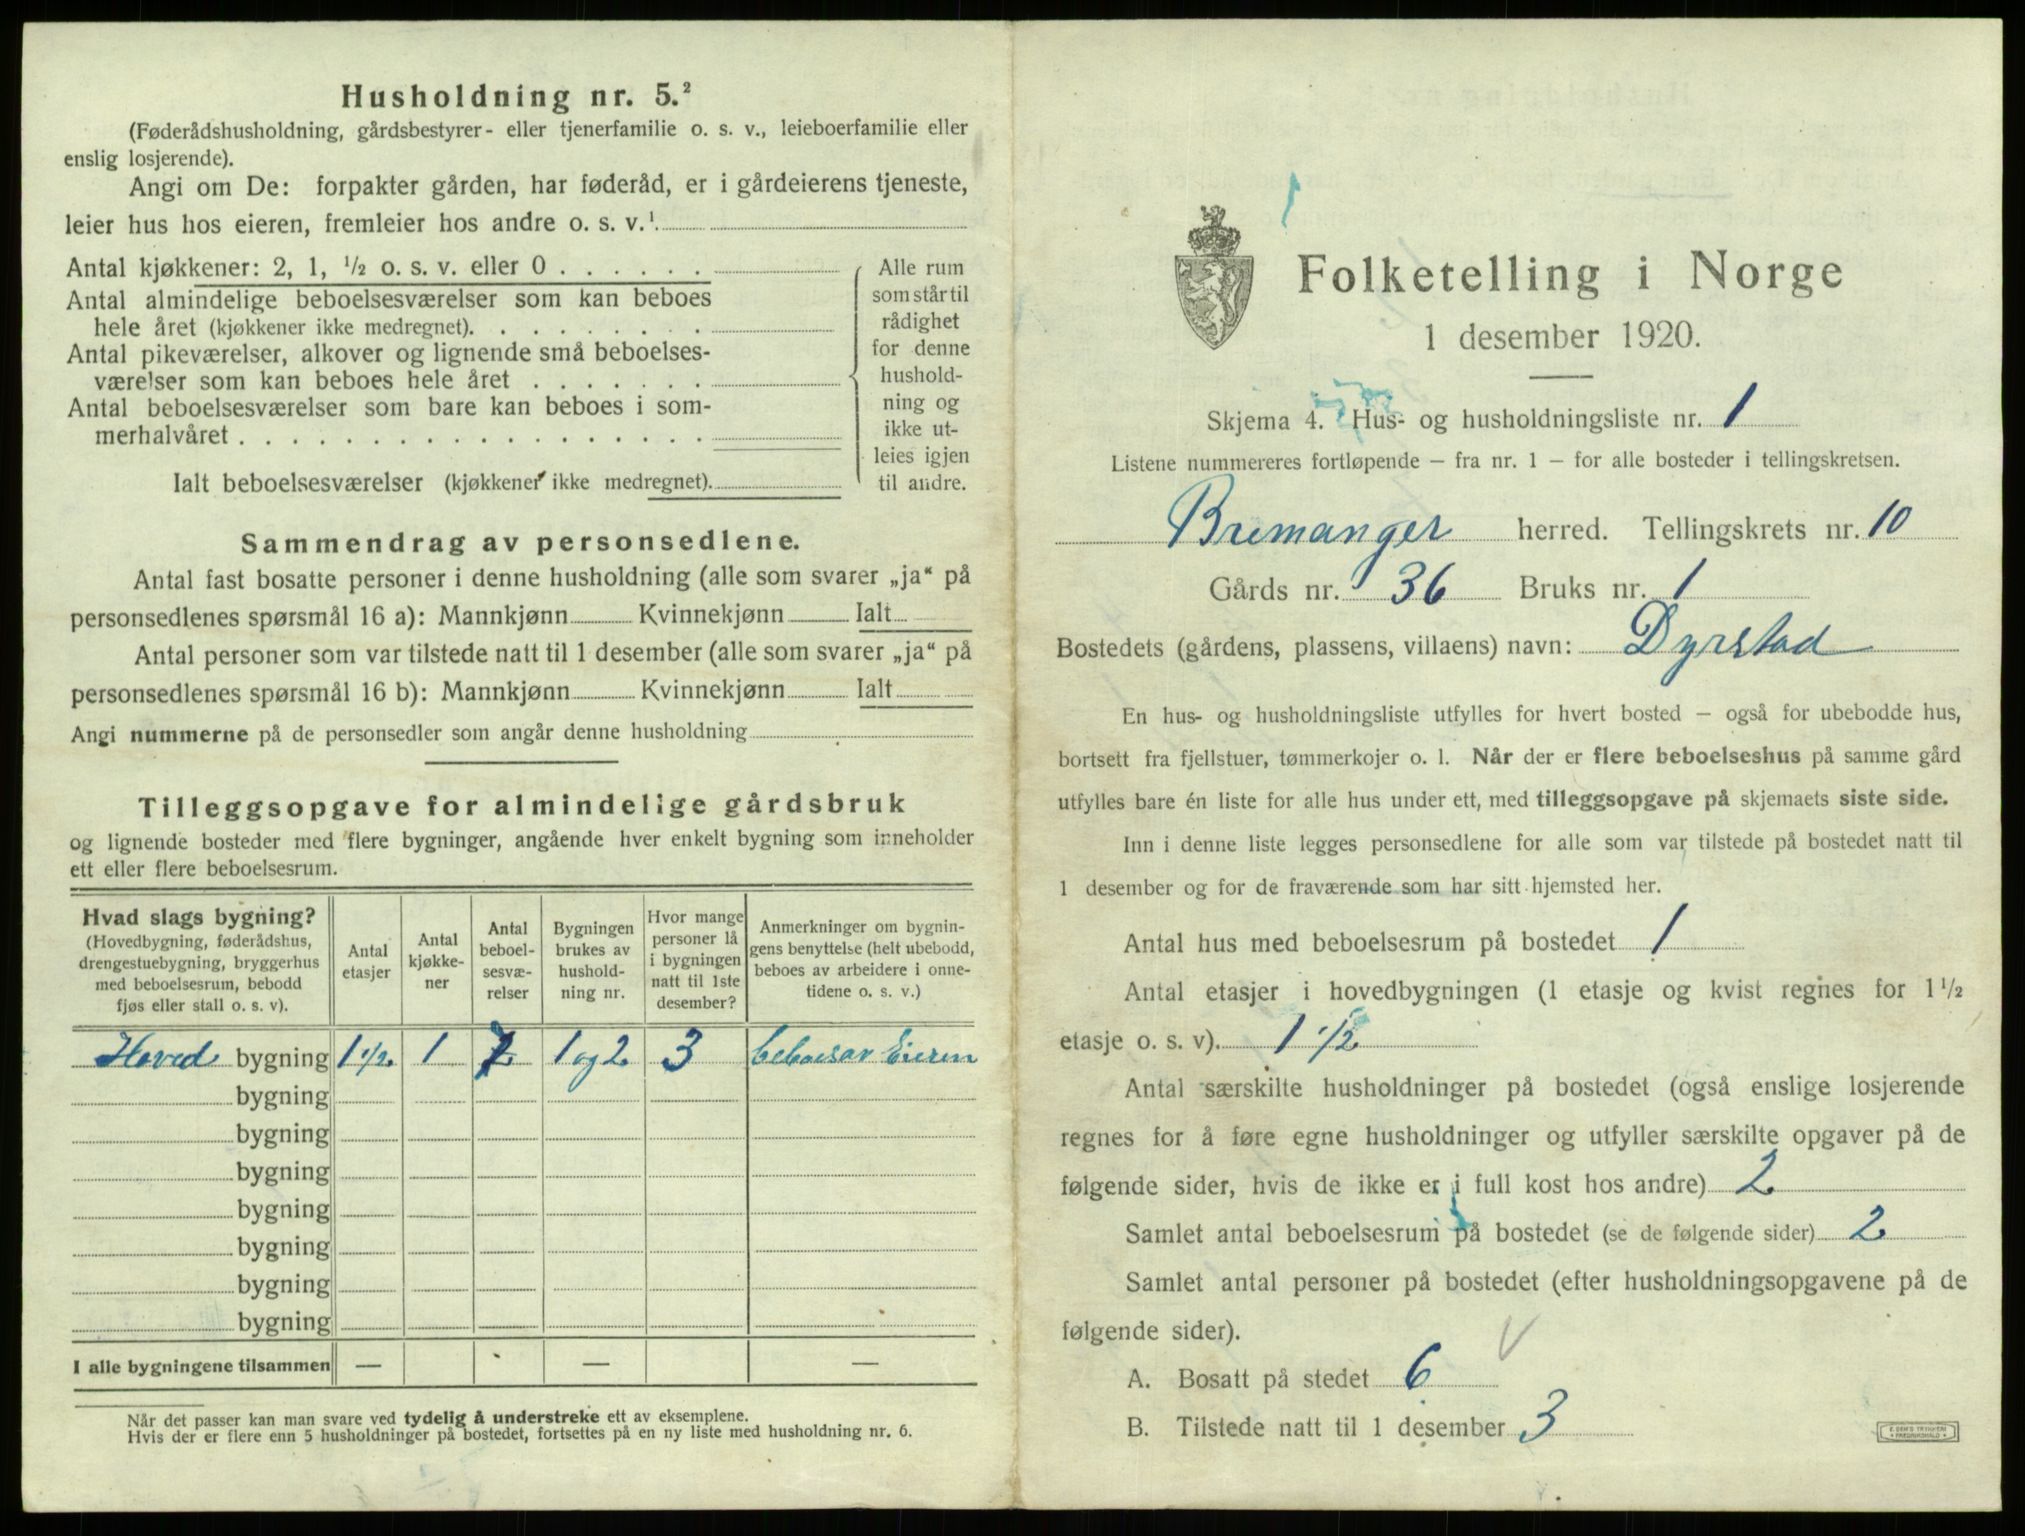 Husholdning nr. 5.²
(Føderådshusholdning, gårdsbestyrer- eller tjenerfamilie o. s. v., leieboerfamilie eller
enslig losjerende).
Angi om De: forpakter gården, har føderåd, er i gårdeierens tjeneste,
leier hus hos eieren, fremleier hos andre o. s. v.¹
Antal kjøkkener: 2, 1, ½ o. s. v. eller 0 . . . . . .
Antal almindelige beboelsesværelser som kan beboes
hele året (kjøkkener ikke medregnet). . . . . . . . .
Antal pikeværelser, alkover og lignende små beboelses-
værelser som kan beboes hele året . . . . . . .
Antal beboelsesværelser som bare kan beboes i som-
merhalvåret . . . . . . . . . . . . . . . . . .
Ialt beboelsesværelser (kjøkkener ikke medregnet).
Alle rum
som står til
rådighet
for denne
hushold-
ning og
ikke ut-
leies igjen
til andre.
Sammendrag av personsedlene.
Antal fast bosatte personer i denne husholdning (alle som svarer „ja“ på
personsedlenes spørsmål 16 a): Mannkjønn Kvinnekjønn Ialt
Antal personer som var tilstede natt til 1 desember (alle som svarer „ja“ på
personsedlenes spørsmål 16 b): Mannkjønn Kvinnekjønn Ialt
Angi nummerne på de personsedler som angår denne husholdning
Tilleggsopgave for almindelige gårdsbruk
og lignende bosteder med flere bygninger, angående hver enkelt bygning som inneholder
ett eller flere beboelsesrum.
Hvad slags bygning?
(Hovedbygning, føderådshus,
drengestuebygning, bryggerhus
med beboelsesrum, bebodd
fjøs eller stall o. s. v).
Antal
etasjer
Antal
kjøkke-
ner
Antal
beboel-
sesvæ-
relser
Bygningen
brukes av
hushold-
ning nr.
Hvor mange
personer lå
i bygningen
natt til 1ste
desember?
Anmerkninger om bygnin-
gens benyttelse (helt ubebodd,
beboes av arbeidere i onne-
tidene o. s. v.)
Hoved bygning 1 ½ 1 2 1 og 2 3 beboesav Eieren
bygning
bygning
bygning
bygning
bygning
bygning
bygning
I alle bygningene tilsammen — — —
Når det passer kan man svare ved tydelig å understreke ett av eksemplene.
Hvis der er flere enn 5 husholdninger på bostedet, fortsettes på en ny liste med husholdning nr. 6.
Folketelling i Norge
1 desember 1920.
Skjema 4. Hus- og husholdningsliste nr. 1
Listene nummereres fortløpende — fra nr. 1 — for alle bosteder i tellingskretsen.
Bremanger herred. Tellingskrets nr. 10
Gårds nr. 36 Bruks nr. 1
Bostedets (gårdens, plassens, villaens) navn: Dyrstad
En hus- og husholdningsliste utfylles for hvert bosted — også for ubebodde hus,
bortsett fra fjellstuer, tømmerkojer o. l. Når der er flere beboelseshus på samme gård
utfylles bare én liste for alle hus under ett, med tilleggsopgave på skjemaets siste side.
Inn i denne liste legges personsedlene for alle som var tilstede på bostedet natt til
1 desember og for de fraværende som har sitt hjemsted her.
Antal hus med beboelsesrum på bostedet 1
Antal etasjer i hovedbygningen (1 etasje og kvist regnes for 1 ½
etasje o. s. v). 1 ½
Antal særskilte husholdninger på bostedet (også enslige losjerende
regnes for å føre egne husholdninger og utfyller særskilte opgaver på de
følgende sider, hvis de ikke er i full kost hos andre) 2
Samlet antal beboelsesrum på bostedet (se de følgende sider) 2
Samlet antal personer på bostedet (efter husholdningsopgavene på de
følgende sider).
A. Bosatt på stedet 6
B. Tilstede natt til 1 desember 3